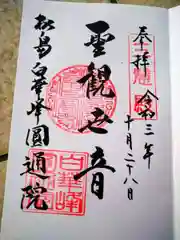 奉拝
令和三年
十月二十八日
聖観世音
松島 白華峰圓通院
白華峰